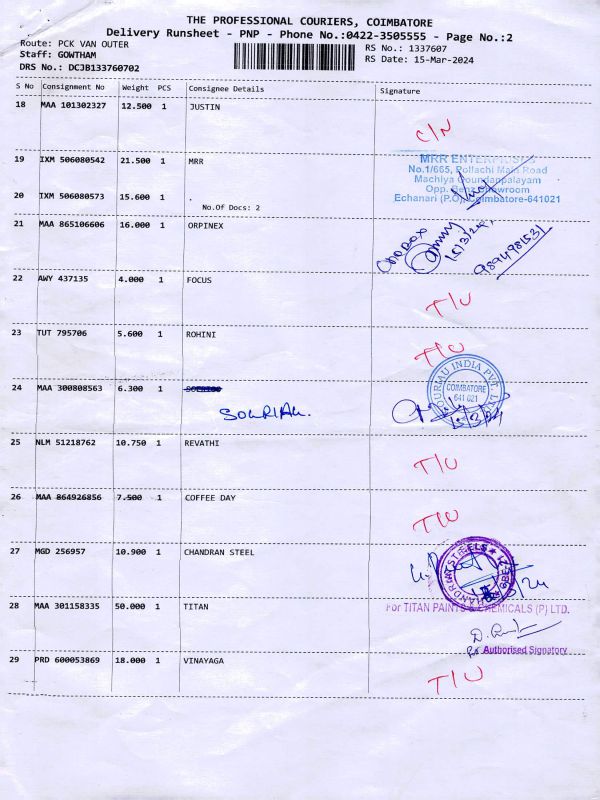 THE PROFESSIONAL COURIERS, COIMBATORE
Delivery Runsheet - PNP - Phone No.:0422-3505555 - Page No.:2
Route: PCK VAN OUTER
Staff: GOWTHAM
DRS No.: DCJB133760702
RS No.: 1337607
RS Date: 15-Mar-2024
S No Consignment No Weight PCS Consignee Details Signature
18 MAA 101302327 12.500 1 JUSTIN
C/N
19 IXM 506080542 21.500 1 MRR
MRR ENTERPRISES
No.1/665, Pollachi Main Road
Machiya Goundappalayam
Opp. Benz Showroom
Echanari (P.O), Coimbatore-641021
20 IXM 506080573 15.600 1 .
No.Of Docs: 2
21 MAA 865106606 16.000 1 ORPINEX
15/3/24
9894981531
22 AWY 437135 4.000 1 FOCUS
T/U
23 TUT 795706 5.600 1 ROHINI
T/U
24 MAA 300808563 6.300 1
SOURIAU.
SOURIAU INDIA PVT. LTD
COIMBATORE
641 021
15/3/24
25 NLM 51218762 10.750 1 REVATHI
T/U
26 MAA 864926856 7.500 1 COFFEE DAY
T/U
27 MGD 256957 10.900 1 CHANDRAN STEEL
28 MAA 301158335 50.000 1 TITAN
For TITAN PAINTS & CHEMICALS (P) LTD.
Authorised Signatory
29 PRD 600053869 18.000 1 VINAYAGA
T/U